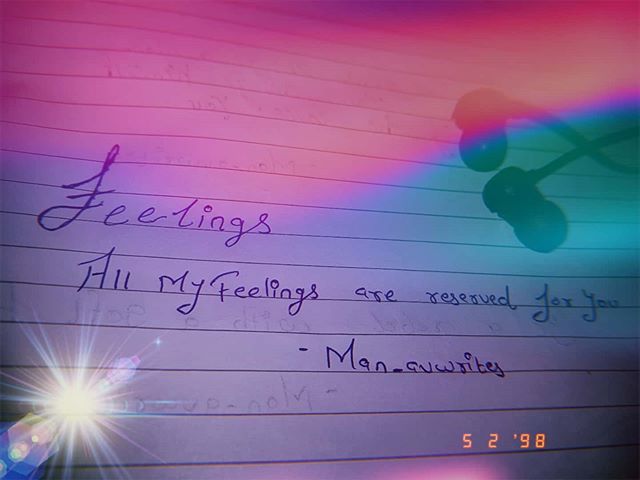 Feelings
All My Feelings are reserved for You
- Man_avwrites
5 2 '98